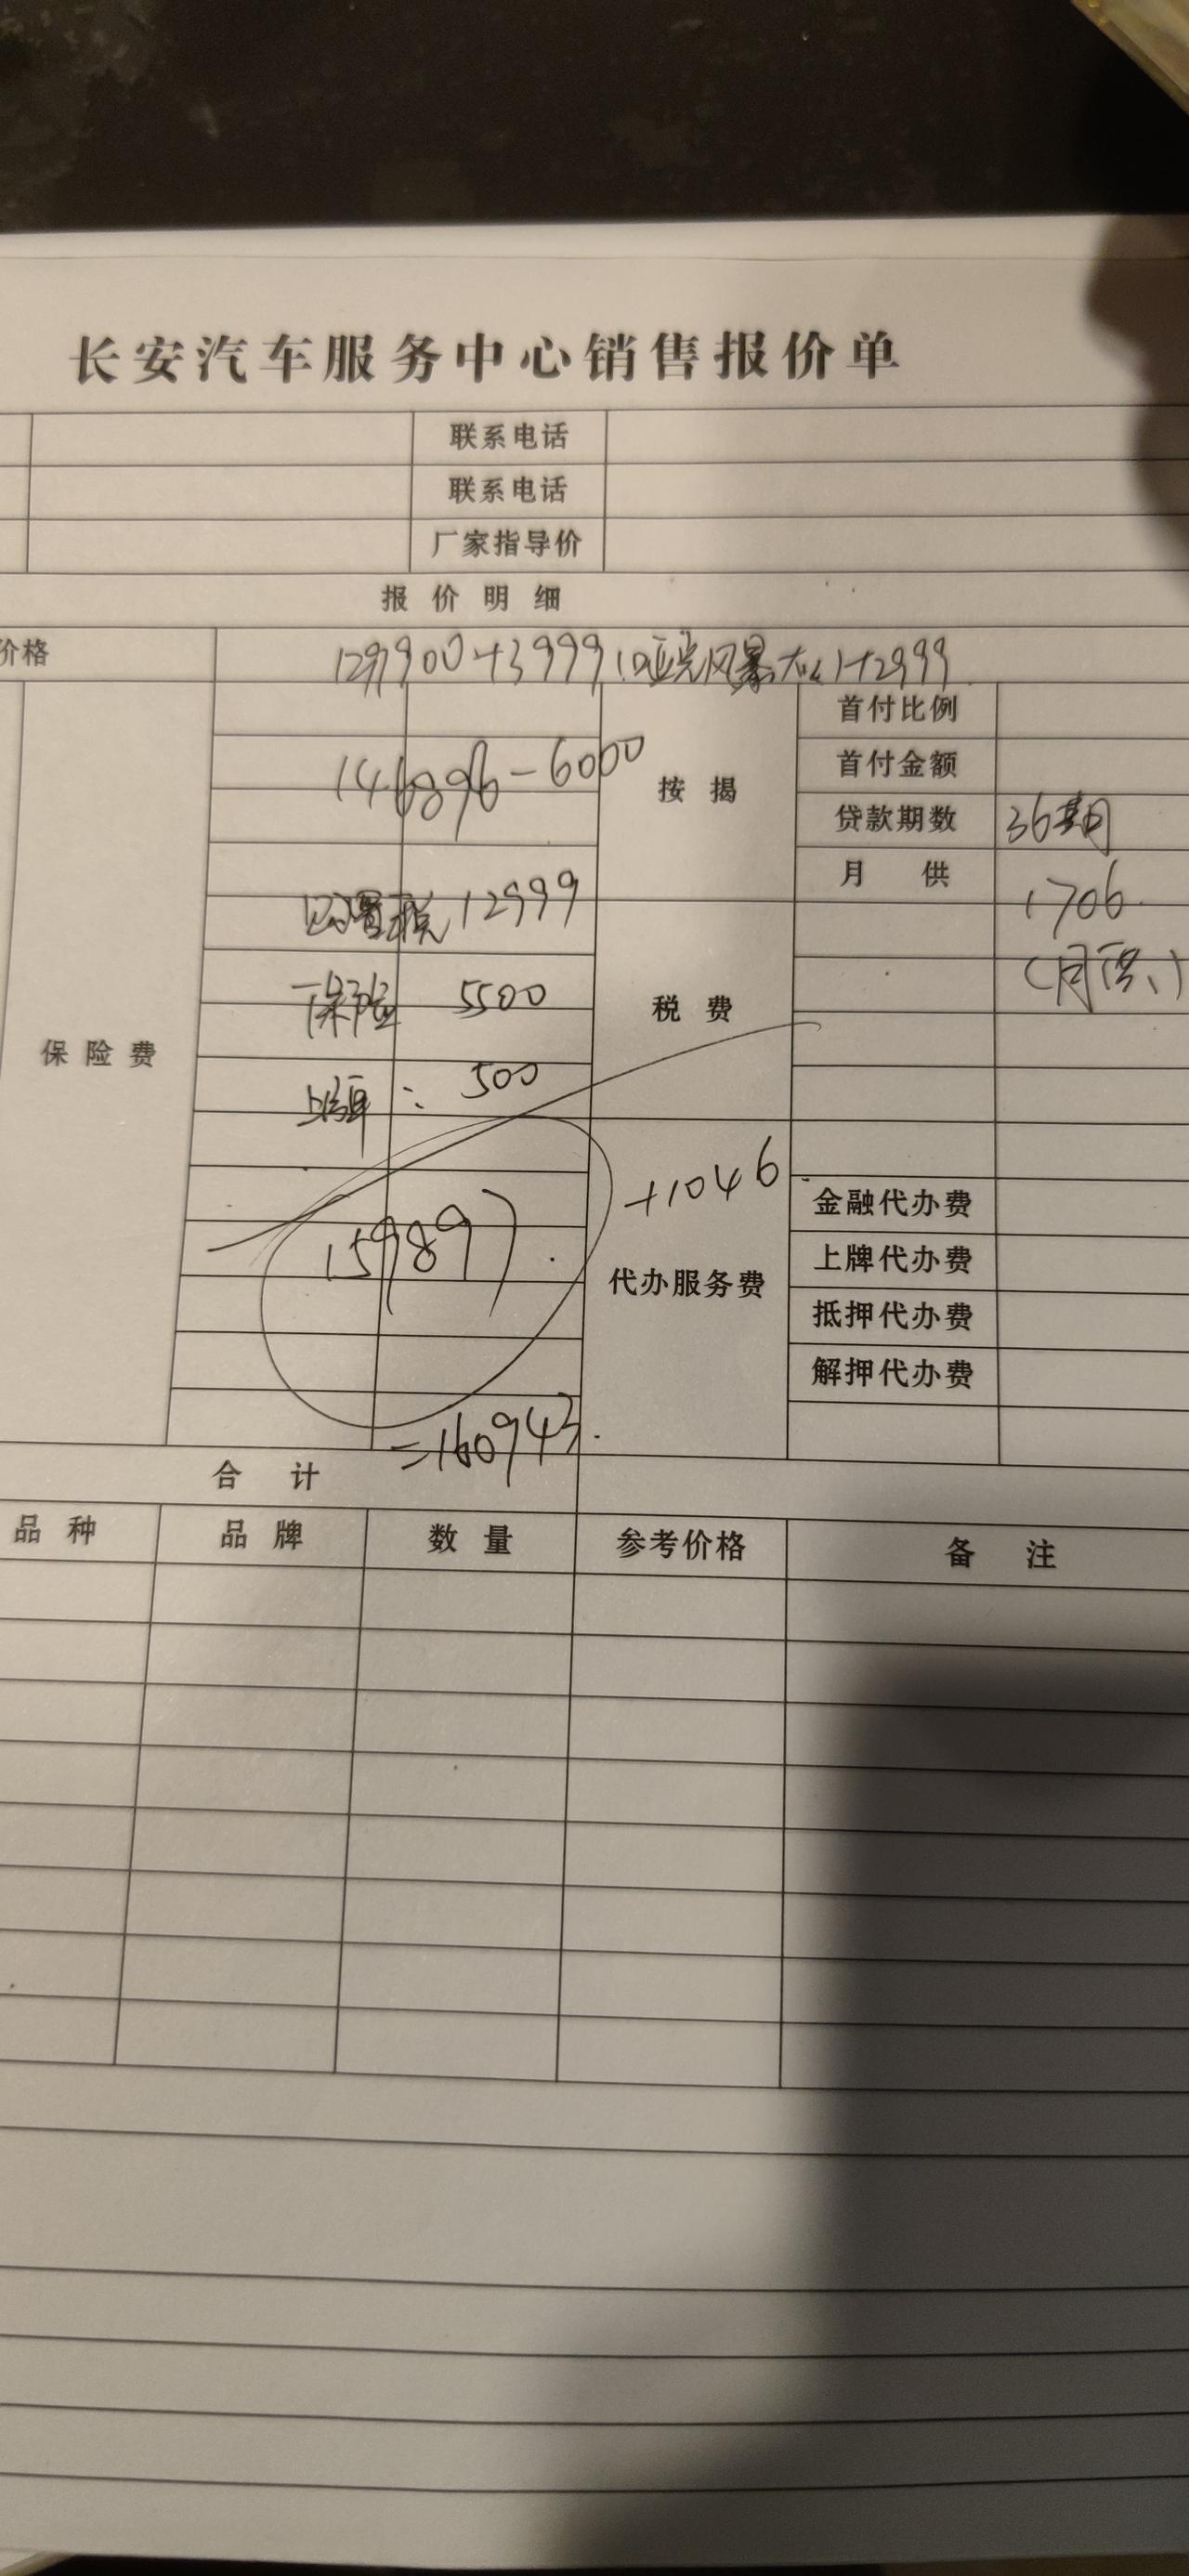 长安汽车服务中心销售报价单
联系电话
联系电话
厂家指导价
报价明细
价格 129900+3999(哑光风暴灰)+2999
首付比例
146896-6000 按揭 首付金额
贷款期数 36期
月供 1706
购置税 12999
(月供)
保险 5500 税费
保险费
上牌: 500
+1046
金融代办费
159897.
代办服务费 上牌代办费
抵押代办费
解押代办费
=160943.
合计
品种 品牌 数量 参考价格 备注